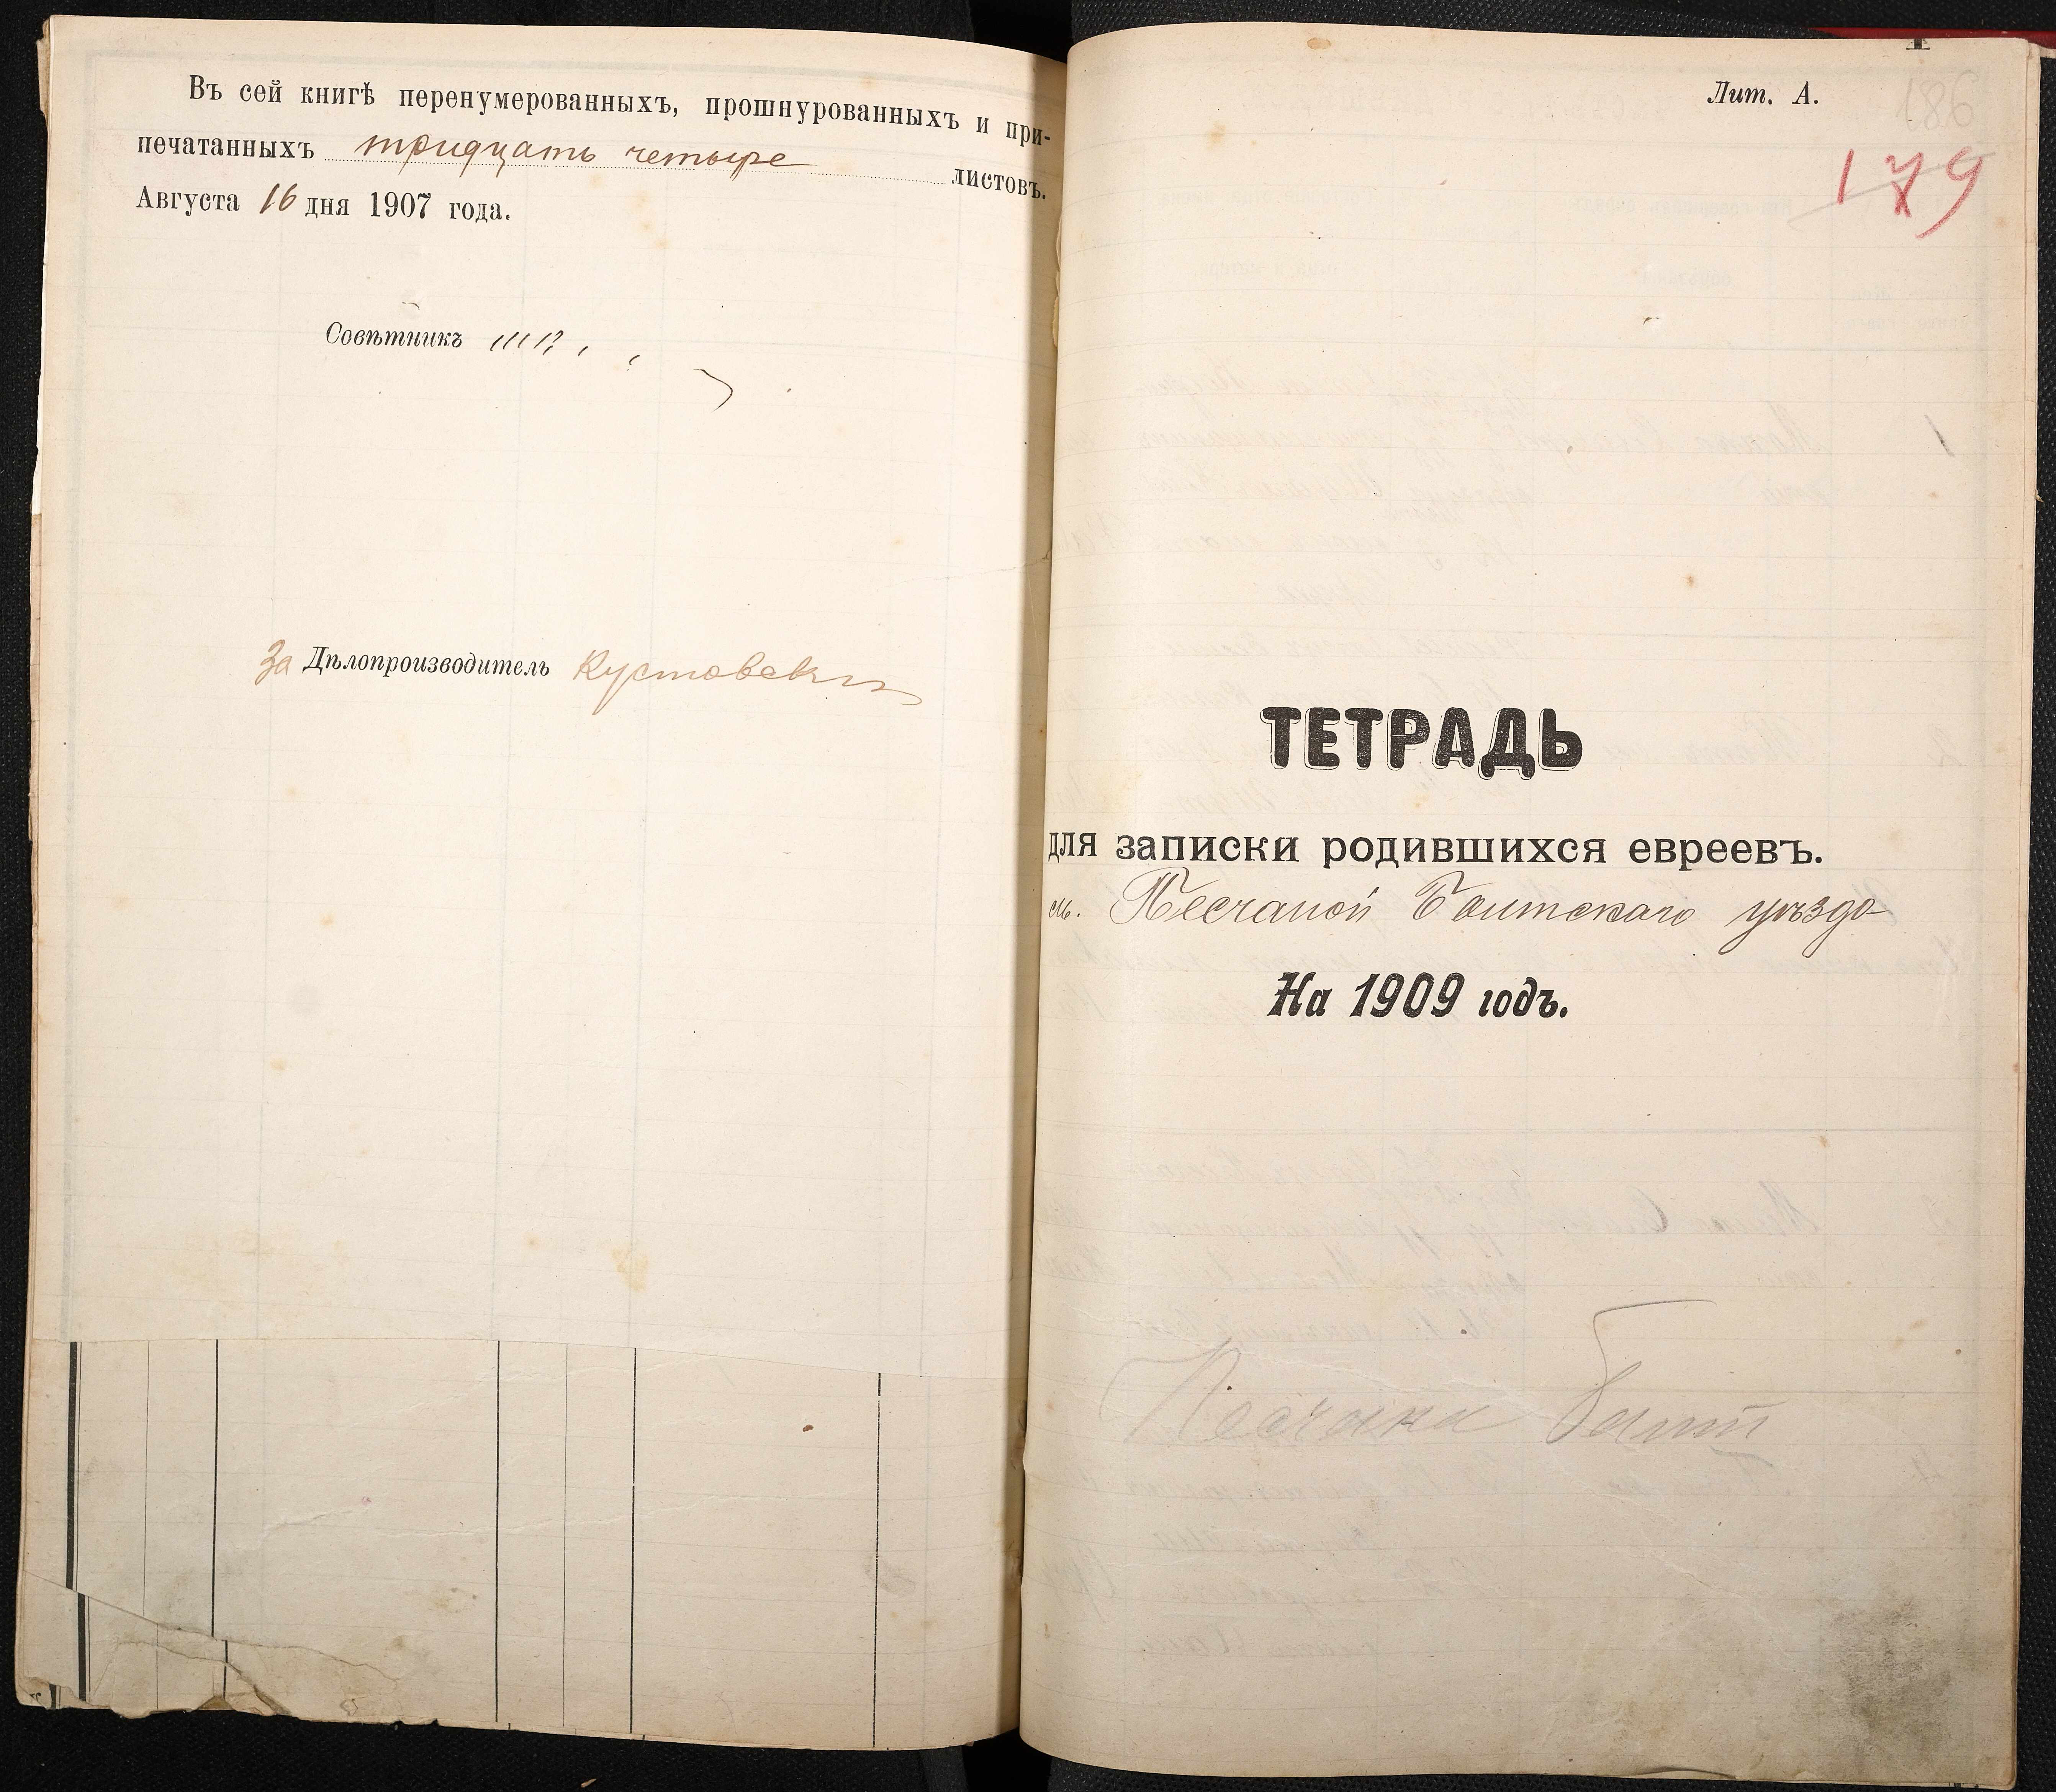 Въ сей книгѣ перенумерованныхъ, прошнурованныхъ и при-
печатанныхъ тридцать четыре листовъ.
Августа 16 дня 1907 года.
Совѣтникъ
За Дѣлопроизводитель Кустовский
Лит. А.
186
179
ТЕТРАДЬ
для записки родившихся евреевъ.
м. Песчаной Балтскаго уѣзда
На 1909 годъ.
Песчана Балт